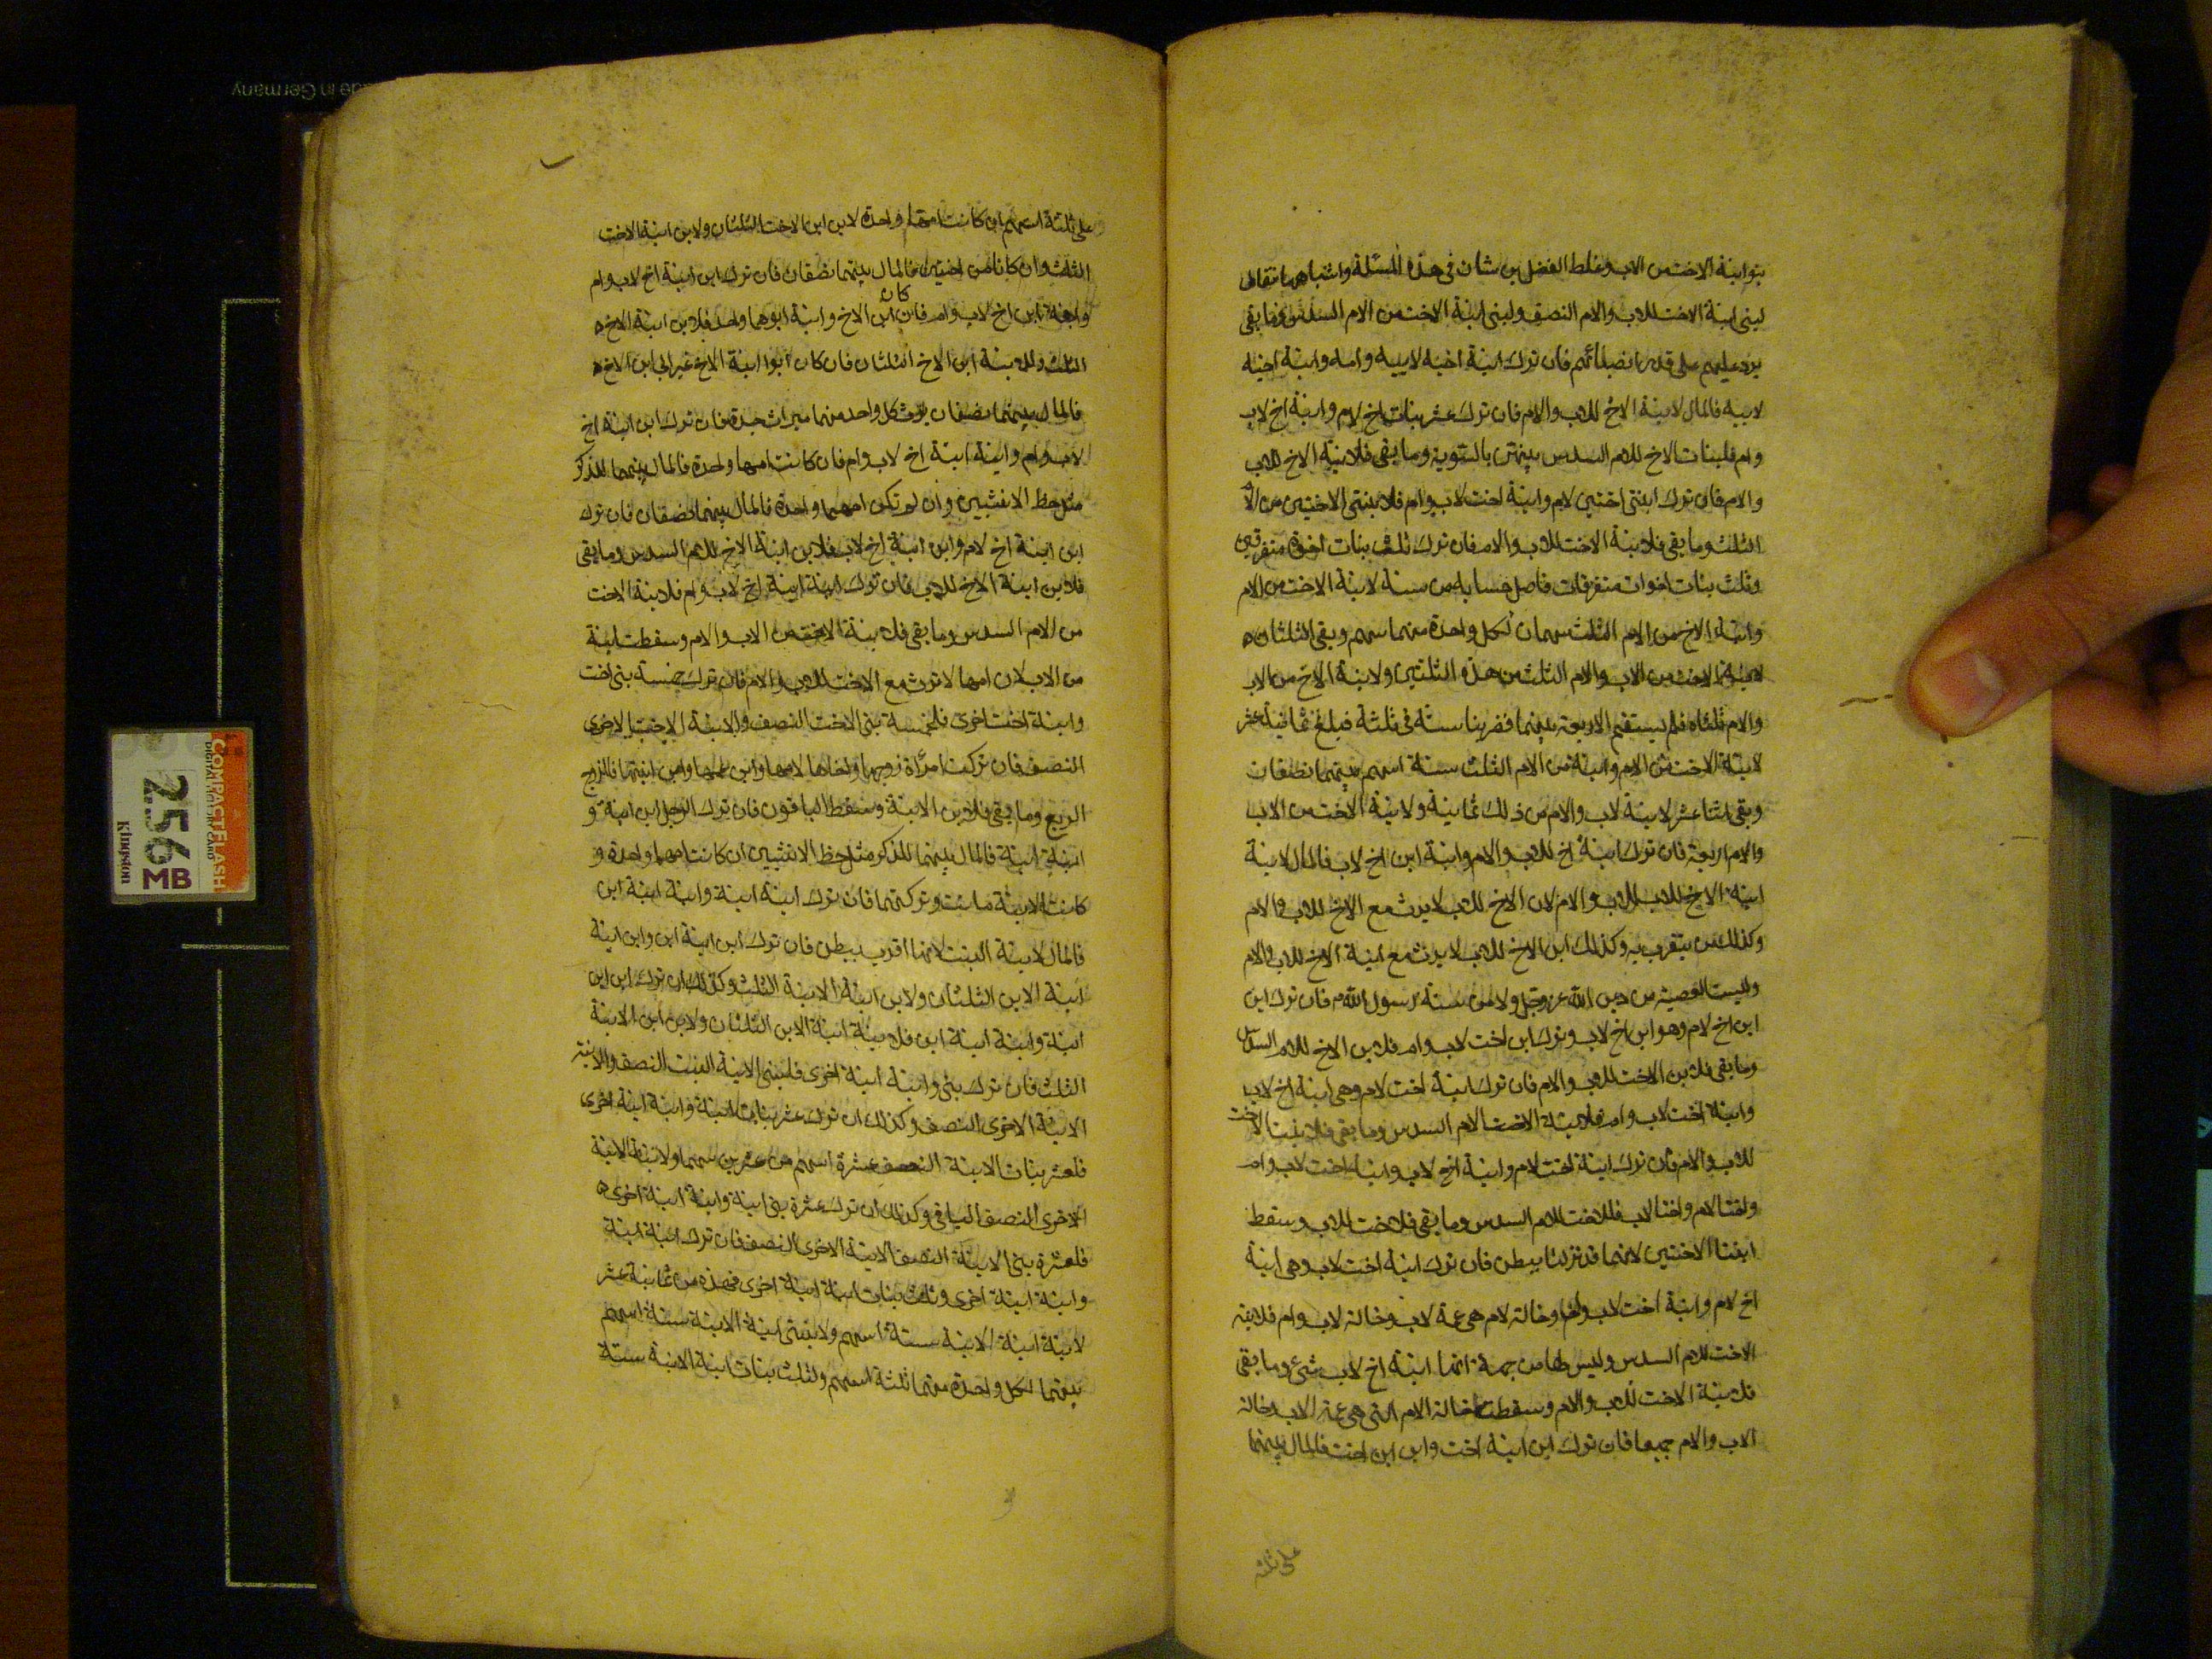 بنو ابنة الاخت من الاب وغلط الفضل بن شاذان في هذه المسئلة واشباهها فقال
لبني ابنة الاخت للاب والام النصف ولبني ابنة الاخت من الام السدس وما بقي
يرد عليهم على قدر انصبائهم فان ترك ابنة اخيه لابيه وامه وابنة اخيه
لابيه فالمال لابنة الاخ للاب والام فان ترك عشر بنات اخ لام وابنة اخ لاب
وام فلبنات الاخ للام السدس بينهن بالسوية وما بقي فلابنة الاخ للاب
والام فان ترك ابنتي اختين لام وابنة اخت لاب وام فلابنتي الاختين من الام
الثلث وما بقي فلابنة الاخت للاب والام فان ترك ثلث بنات اخوة متفرقين
وثلث بنات اخوات متفرقات فاصل حسابه من ستة لابنة الاخت من الام
وابنة الاخ من الام الثلث سهمان لكل واحدة منهما سهم وبقي الثلثان
لابنة الاخت من الاب والام الثلث من هذه الثلثين ولابنة الاخ من الاب
والام ثلثاه فلم يستقم الاربعة بينهما فضربنا ستة في ثلثة فبلغ ثمانية عشر
لابنة الاخت من الام وابنة من الام الثلث ستة اسهم بينهما نصفان
وبقي اثنا عشر لابنة لاب والام من ذلك ثمانية ولابنة الاخت من الاب
والام اربعة فان ترك ابنة اخ للاب والام وابنة ابن اخ لاب فالمال لابنة
ابنة الاخ للاب والام لان الاخ للاب لا يرث مع الاخ للاب والام
وكذلك من يتقرب به وكذلك ابن الاخ للاب لا يرث مع ابنة الاخ للاب والام
وليست العصبة من دين الله عز وجل ولا من سنة رسول الله م فان ترك ابن
ابن اخ لام وهو ابن اخ لاب وترك ابن اخت لاب وام فلابن الاخ للام السدس
وما بقي فلابن الاخت للاب والام فان ترك ابنة اخت لام وهي ابنة اخ لاب
وابنة اخت لاب وام فلابنة الاخت الام السدس وما بقي فلابنة الاخت
للاب والام فان ترك ابنة اخت لام وابنة اخ لاب وابنة اخت لاب وام
واختا لام واختا لاب فللاخت للام السدس وما بقي فللاخت للاب وسقط
ابنتا الاختين لانهما قد نزلتا ببطن فان ترك ابنة اخت لاب وهي ابنة
اخ لام وابنة اخت لاب وام وخالة لام هي عمة لاب وخالة لاب وام فلابنة
الاخت للام السدس وليس لها من جهة انها ابنة اخ لاب شيء وما بقي
فلابنة الاخت للاب والام وسقطت خالة الام التي هي عمة الاب وخالة
الاب والام جميعا فان ترك ابن ابنة اخت وابن ابن اخت فالمال بينهما
على ثلثة
على ثلثة اسهم ان كانت امهما واحدة لابن ابن الاخت الثلثان ولابن ابنة الاخت
الثلث وان كانا من اختين فالمال بينهما نصفان فان ترك ابن ابنة اخ لاب وام
وابنة ابن اخ لاب وام فان كان ابن الاخ وابنة ابوهما واحد فلابن ابنة الاخ
الثلث وللابنة ابن الاخ الثلثان فان كان ابوا ابنة الاخ غير ابي ابن الاخ
فالمال بينهما نصفان يرث كل واحد منهما ميراث جده فان ترك ابن ابنة اخ
لاب وام وابنة ابنة اخ لاب وام فان كانت امهما واحدة فالمال بينهما للذكر
مثل حظ الانثيين وان لم تكن امهما واحدة فالمال بينهما نصفان فان ترك
ابن ابنة اخ لام وابن ابنة اخ لاب فلابن ابنة الاخ للام السدس وما بقي
فلابن ابنة الاخ للاب فان ترك ابنة ابنة اخ لاب وام فلابنة الاخت
من الام السدس وما بقي فلابنة الاخت من الاب والام وسقطت ابنة
من الاب لان امها لا ترث مع الاخت للاب والام فان ترك خمسة بني اخت
وابنة اخت اخرى فلخمسة بني الاخت النصف ولابنة الاخت الاخرى
النصف فان تركت امرأة زوجها واخاها لامها وابن عمها وابن ابنتها فللزوج
الربع وما بقي فلابن الابنة وسقط الباقون فان ترك الرجل ابن ابنة و
ابنة ابنة فالمال بينهما للذكر مثل حظ الانثيين ان كانت امهما واحدة و
كانت الابنة ماتت وتركتهما فان ترك ابنة ابنة وابنة ابنة ابن
فالمال لابنة البنت لانها اقرب ببطن فان ترك ابن ابنة ابن وابن ابنة
ابنة الابن الثلثان ولابن ابنة الابنة الثلث وكذلك ان ترك ابن ابن
ابنة وابنة ابنة ابن فلابنة ابنة الابن الثلثان ولابن ابن الابنة
الثلث فان ترك بني وابنة ابنة اخرى فلبني الابنة البنت النصف ولابنة
الابنة الاخرى النصف وكذلك ان ترك عشر بنات ابنة وابنة ابنة اخرى
فلعشر بنات الابنة النصف عشرة اسهم من عشرين سهما ولابنة الابنة
الاخرى النصف الباقي وكذلك ان ترك عشرة بني ابنة وابنة ابنة اخرى
فلعشرة بني الابنة النصف الابنة الاخرى النصف فان ترك ابنة ابنة
وابنة ابنة اخرى وثلث بنات ابنة ابنة اخرى فهذه من ثمانية عشر
لابنة ابنة الابنة ستة اسهم ولابنتي ابنة الابنة ستة اسهم
بينهما لكل واحدة منهما ثلثة اسهم ولثلث بنات ابنة الابنة ستة
COMPACTFLASH
256
MB
Kingston
Made in Germany